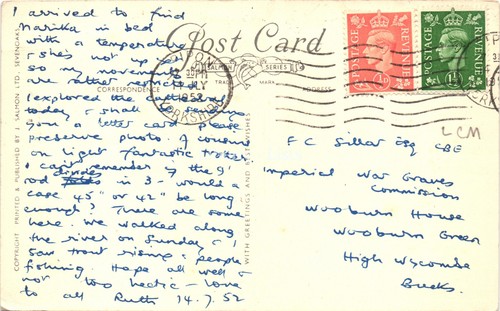 I arrived to find
Marika in bed
with a temperature
& she's not up yet
so my movements
are rather uncertain
I explored the
today & shall send
you a letter card please
preserve photo. A
on light fantastic
I can't remember if the 9'
rod divides in 3 - would a
case 45" or 42" be long
enough? There are some
here. We walked along
the river on Sunday & I
saw trout rising & people
fishing. Hope all well &
not too hectic - love
to all Ruth 14.7.52
Post Card
SALMON SERIES
TRADE MARK
CORRESPONDENCE
ADDRESS
COPYRIGHT PRINTED & PUBLISHED BY J. SALMON LTD., SEVENOAKS.
WITH GREETINGS AND BEST WISHES
JLY
1952
YORKSHIRE
POSTAGE REVENUE
1D
POSTAGE REVENUE
1½D
LCM
F C Sillar Esq CBE
Imperial War Graves
Commission
Wooburn House
Wooburn Green
High Wycombe
Bucks.